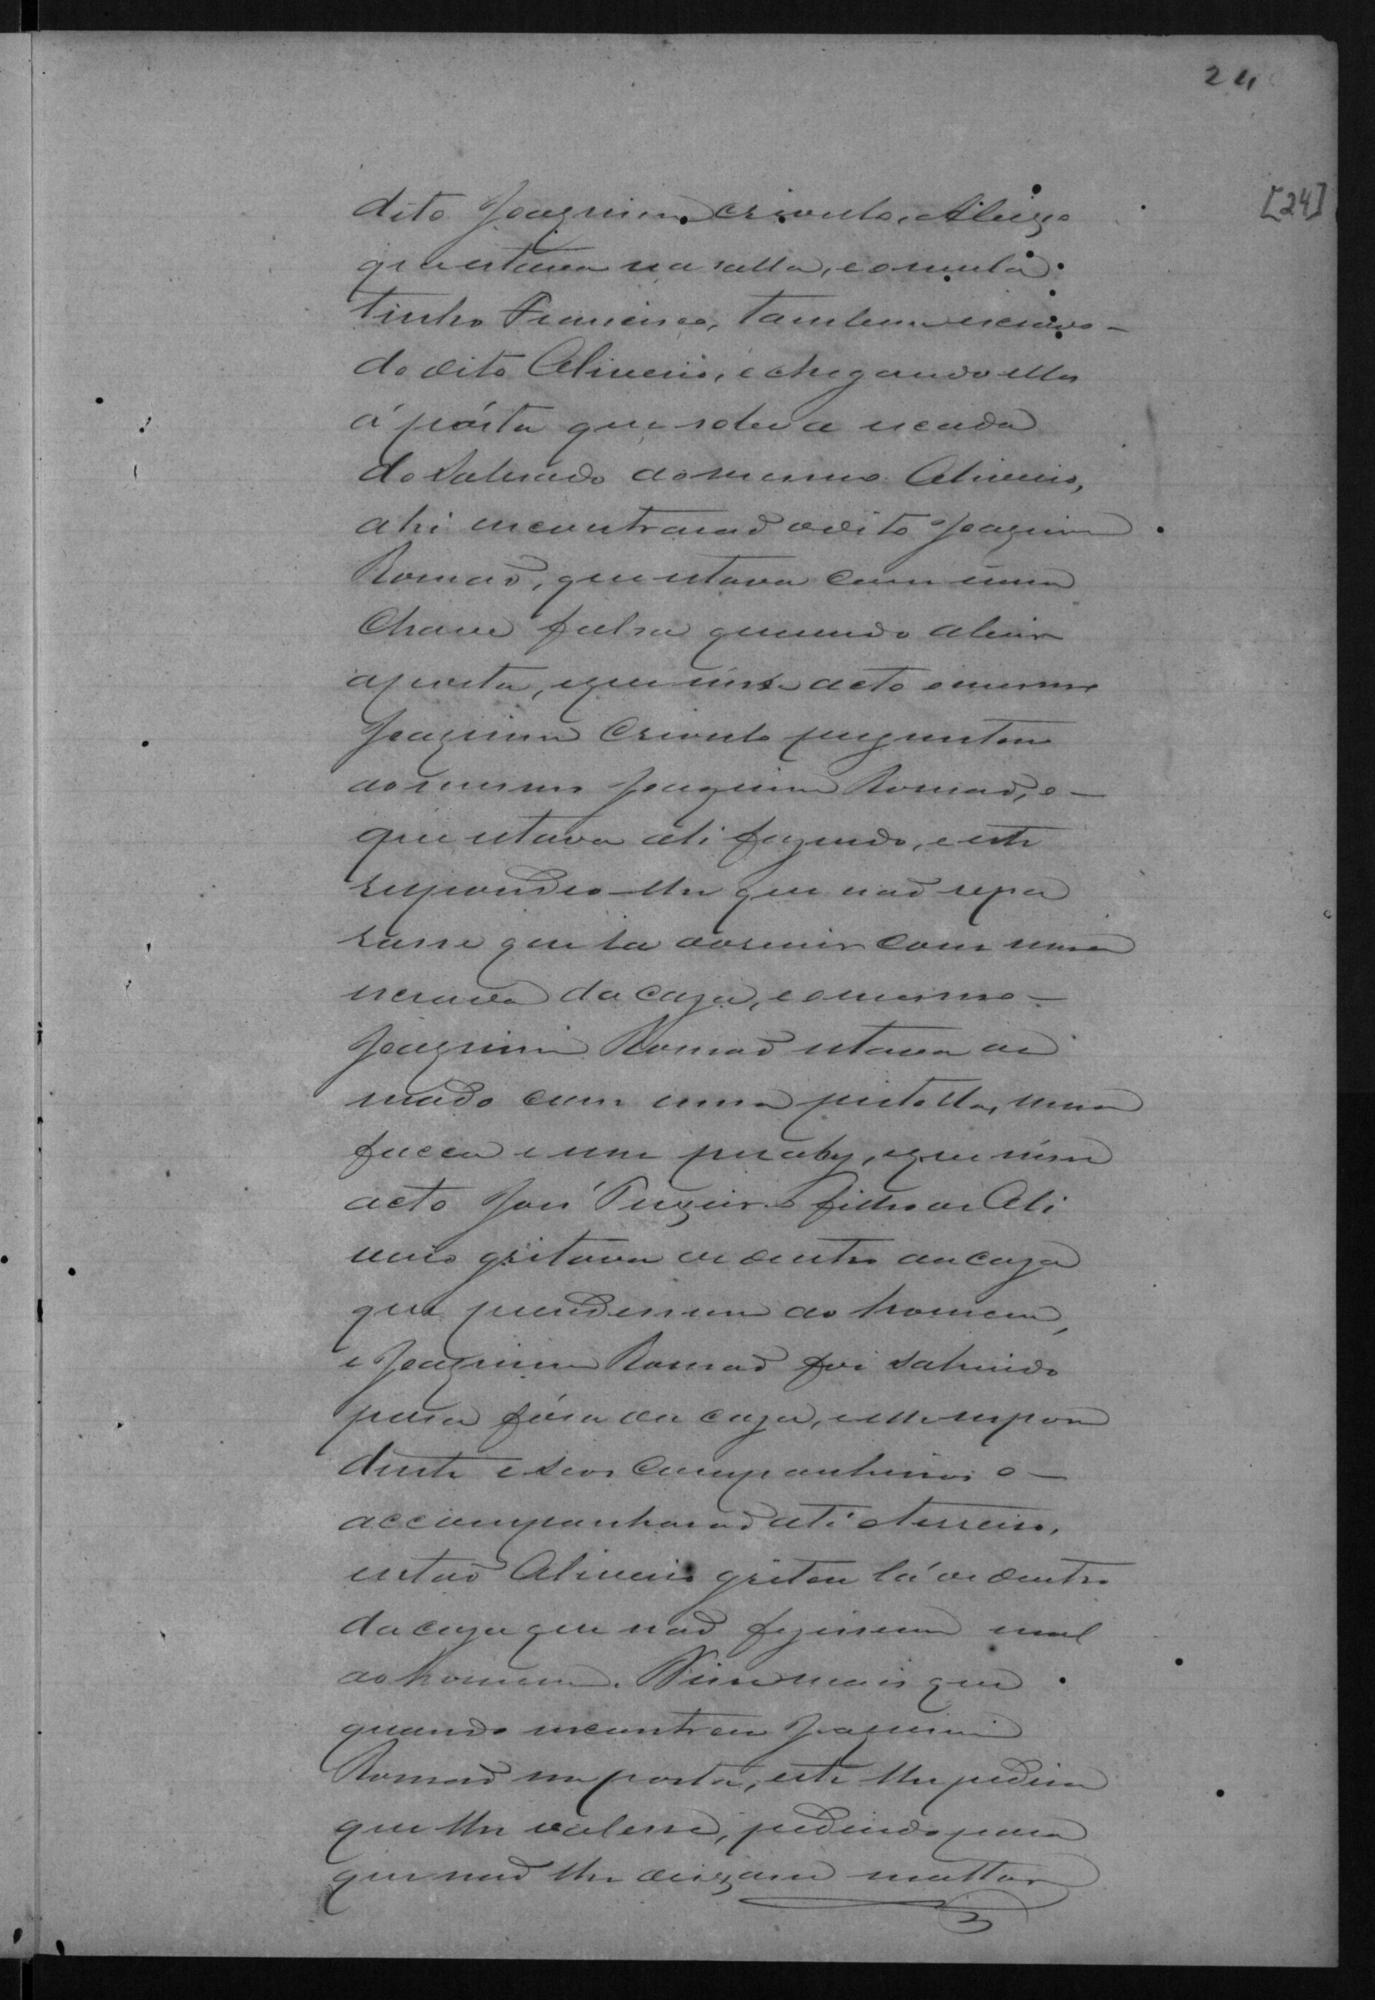 24
[24]
dito Joaquim crioulo, Aleixo
que estava na salla, e o mula
tinho Francisco, tambem escravo
do dito Oliveira, e chegando elles
á pórta que sobe a escada
do sobrado do mesmo Oliveira,
ahi encontraraõ o dito Joaquim
Romaõ, que estava com uma
chave falsa querendo abrir
a porta, e que nesse acto o mesmo
Joaquim Crioulo perguntou
ao mesmo Joaquim Romaõ, o
que estava ali fazendo, e este
respondeo-lhe que naõ repa
rasse que ia dormir com uma
escrava da caza, e o mesmo
Joaquim Romaõ estava ar
mado com uma pistolla, uma
facca e um , e que nesse
acto José filho de Oli
veira gritava de dentro da caza
que prendessem ao homem,
e Joaquim Romaõ foi sahindo
para fóra da caza, e elle respon
dente e seos companheiros o
accompanharaõ até o terreiro,
entaõ Oliveira gritou lá de dentro
da caza que naõ fizessem mal
ao homem. Disse mais que
quando encontrou Joaquim
Romaõ na porta, este lhe pedira
que lhe valesse, pedindo para
que naõ lhe deixasse mattar